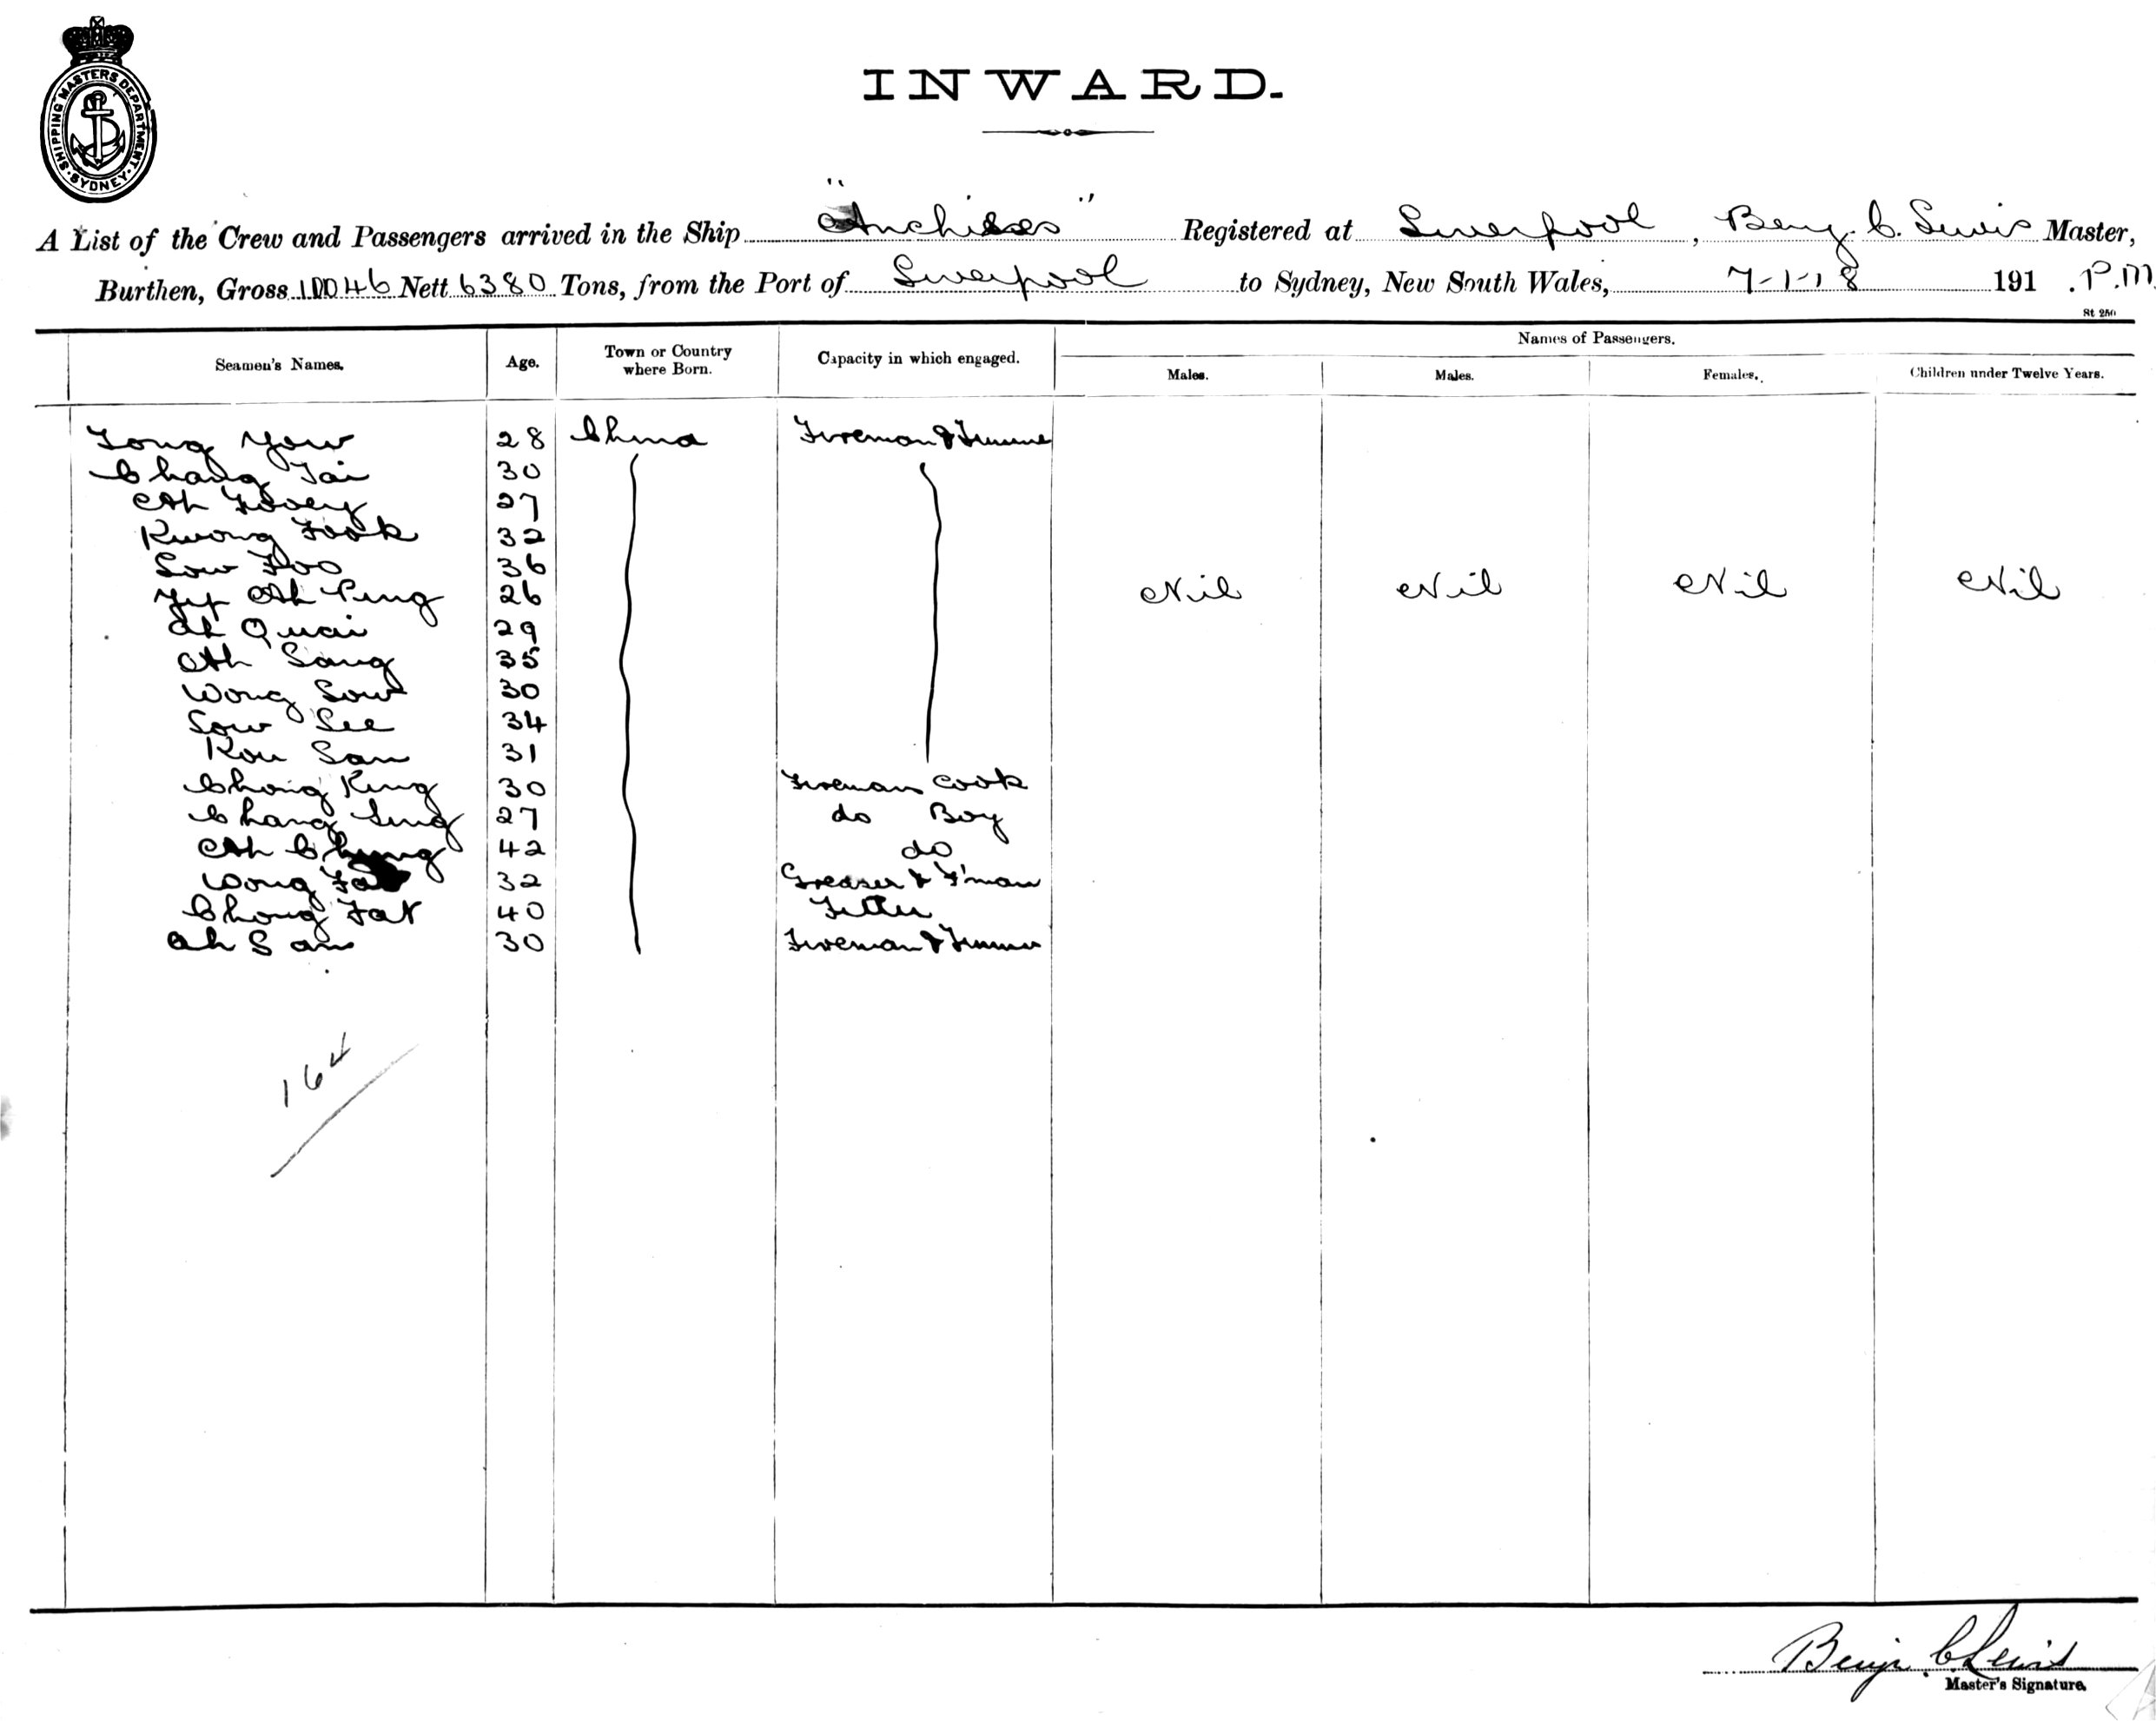 SHIPPING MASTERS DEPARTMENT. SYDNEY.
INWARD.
A List of the Crew and Passengers arrived in the Ship "Anchises" Registered at Liverpool, Benj. C. Lewis Master,
Burthen, Gross 10046 Nett 6380 Tons, from the Port of Liverpool to Sydney, New South Wales, 7-1-18 191 . P.M
St 250
Names of Passengers.
Seamen's Names. Age. Town or Country where Born. Capacity in which engaged. Males. Males. Females. Children under Twelve Years.
Yow 28 China Fireman & Trimmer
Chang Tai 30
Ah 27
Kwong Fook 32
Low Foo 36
Yip Ah Ping 26 Nil Nil Nil Nil
Ah Quai 29
Ah Sang 35
Wong Sow 30
Sow See 34
Kou San 31
Chong King 30 Fireman Cook
Chang Sing 27 do Boy
Ah Chung 42 do
Wong 32 Greaser & F'man
Chong Fat 40 Fitter
Ah San 30 Fireman & Trimmer
164
Benjn. C Lewis
Master's Signature.